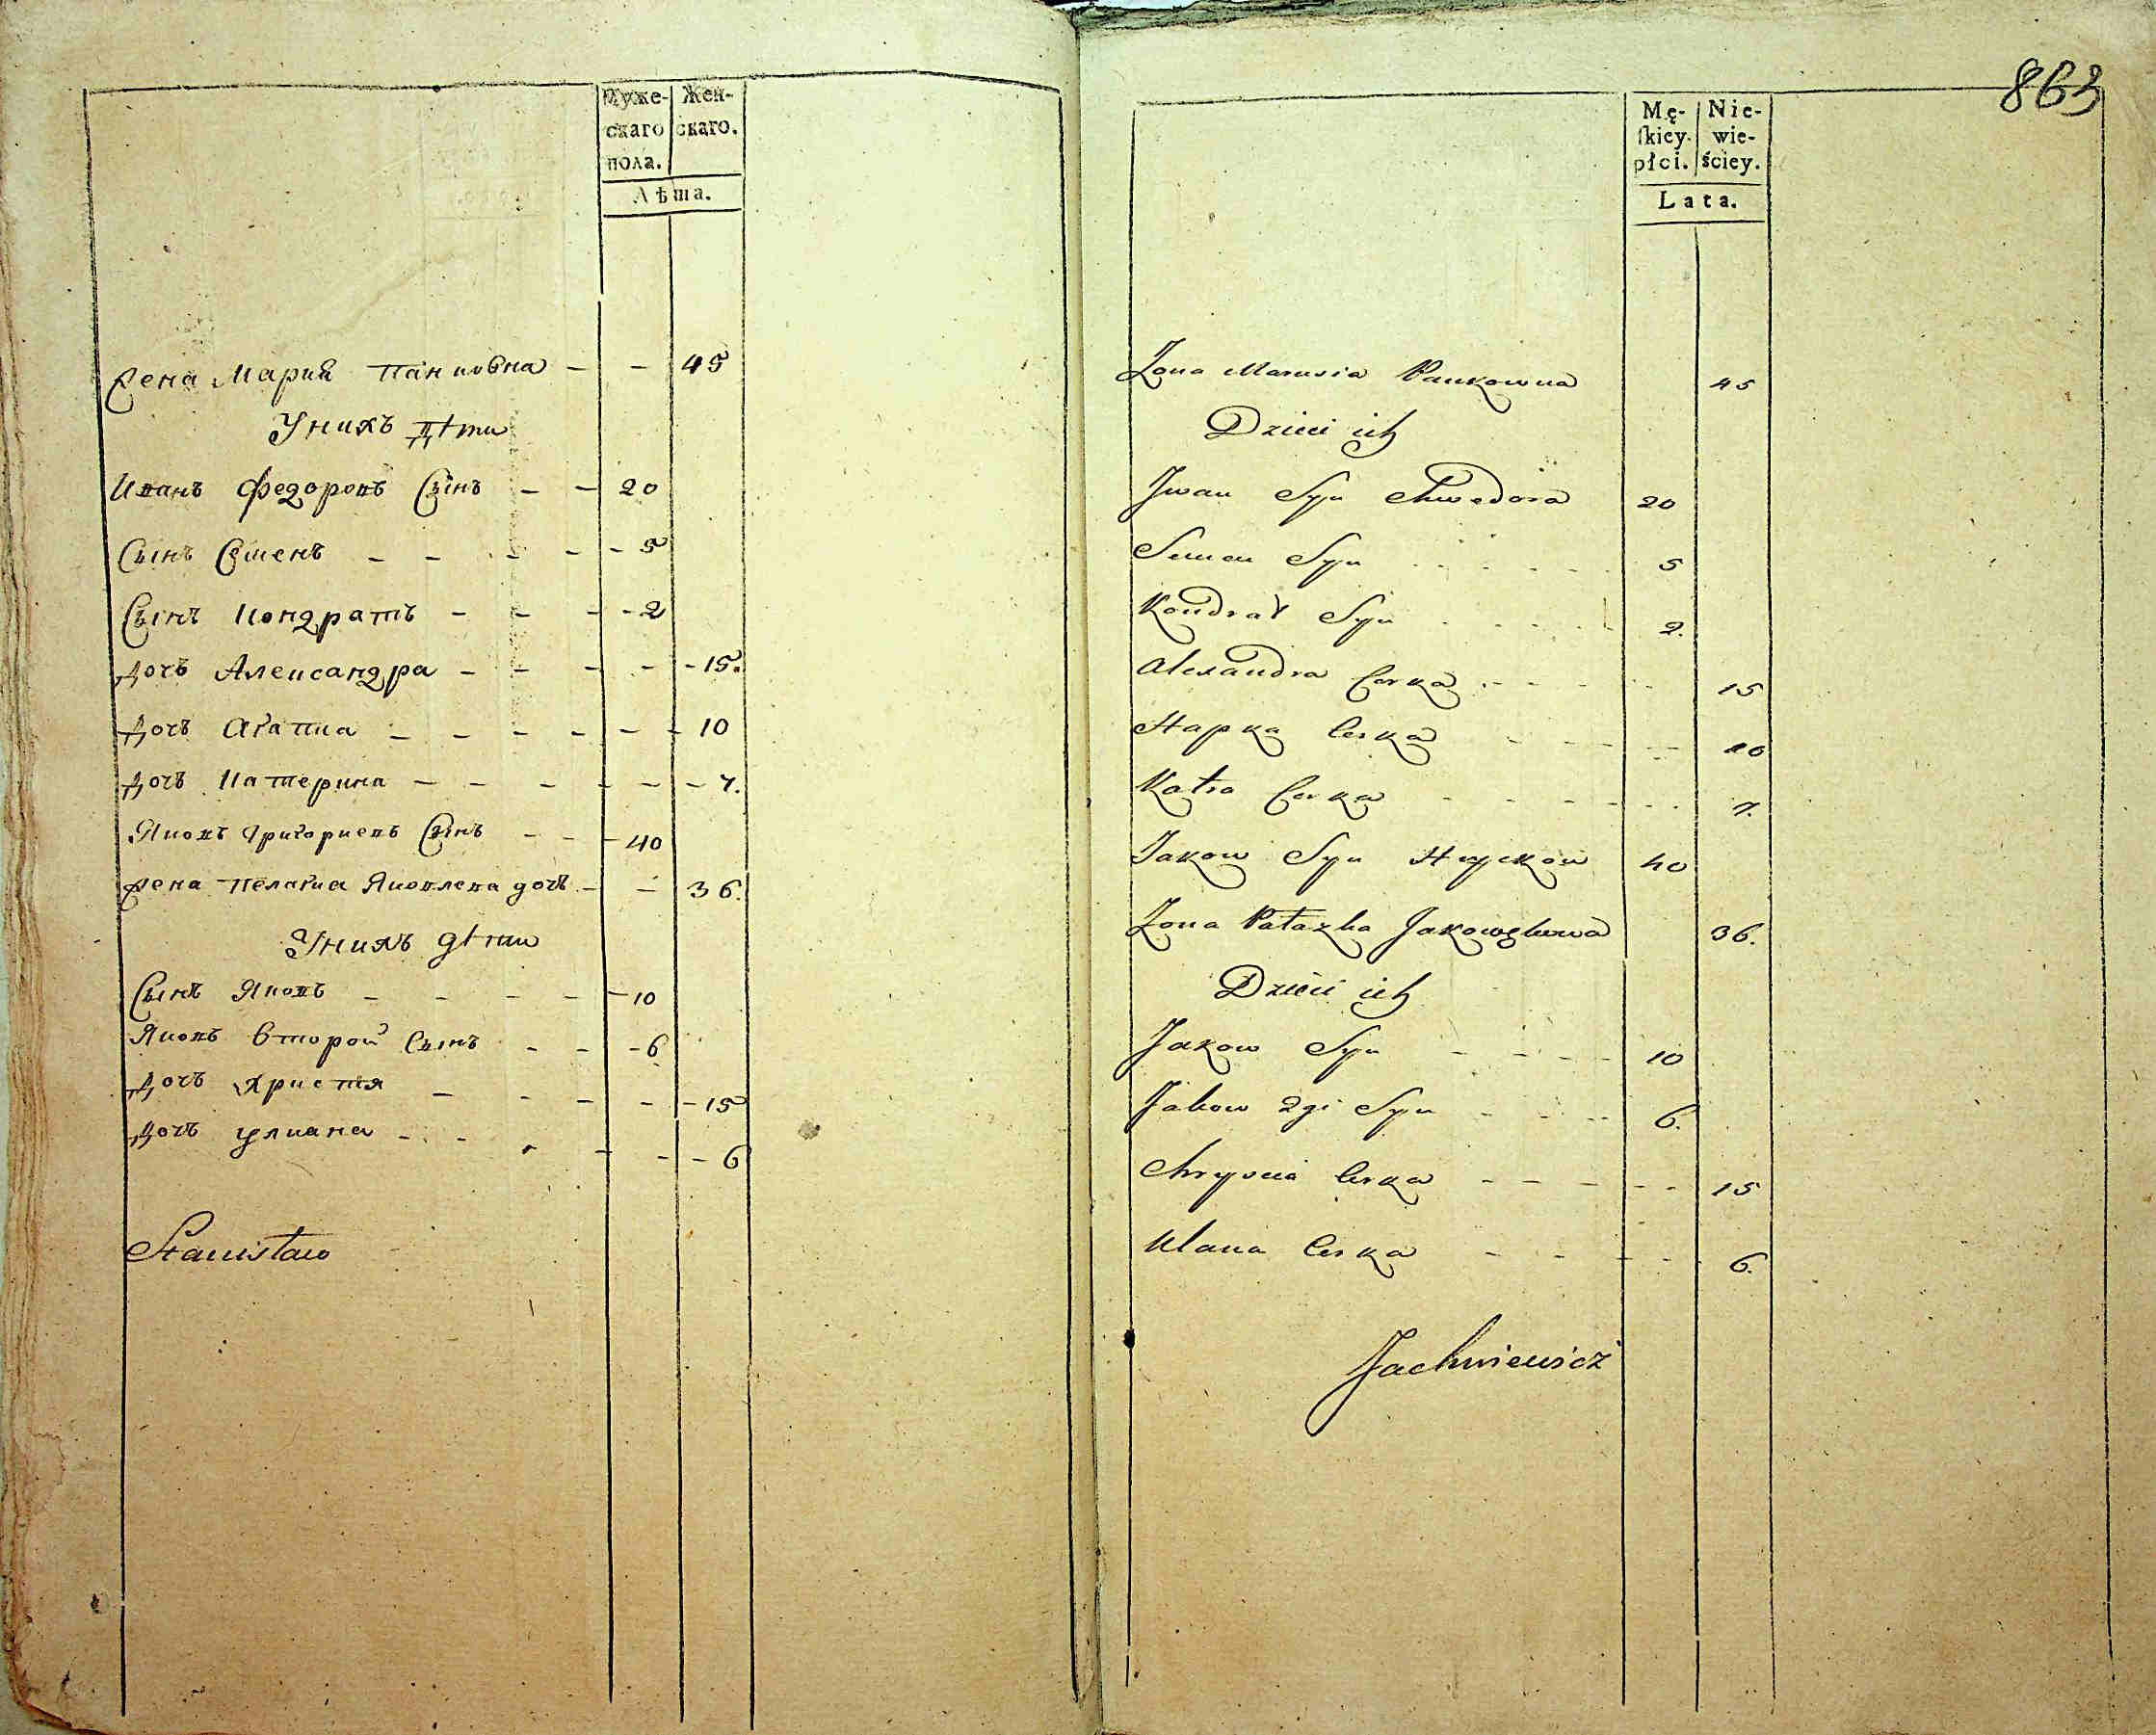 Муже- Жен-
скаго скаго.
пола.
Лѣта.
Жена Мария Панковна - - 45
Унихъ дѣти
Иванъ Федоровъ Сынъ - - 20
Сынъ Семенъ - - - - - 5
Сынъ Кондратъ - - - - 2
Дочь Александра - - - - - 15.
Дочь Агапиа - - - - - - 10
Дочь Катерина - - - - - - 7.
Яковъ Григориевъ Сынъ - - - 40
Жена Пелагиа Яковлева дочь - - 36.
Унихъ дѣти
Сынъ Яковъ - - - - - 10
Яковъ Второй Сынъ - - - 6
Дочь Христя - - - - - 15
Дочь Улиана - - - - - - 6
Stanisław
863
Mę- Nie-
ſkiey wie-
płci. ściey.
Lata.
Zona Marusia Pankowna 45
Dzieci ich
Jwan Syn Chwedora 20
Semen Syn - - - - - - 5
Kondrat Syn - - - - - 2.
Alexandra Corka - - - - - 15
Hapka Corka - - - - - 10
Katra Corka - - - - - - - 7.
Jakow Syn Hryckow 40
Zona Pałazka Jakowglewna 36.
Dzieci ich
Jakow Syn - - - - 10
Jakow 2gi Syn - - - - 6.
Chryscia Corka - - - - - - 15
Ulana Corka - - - - - 6.
Jachniewicz